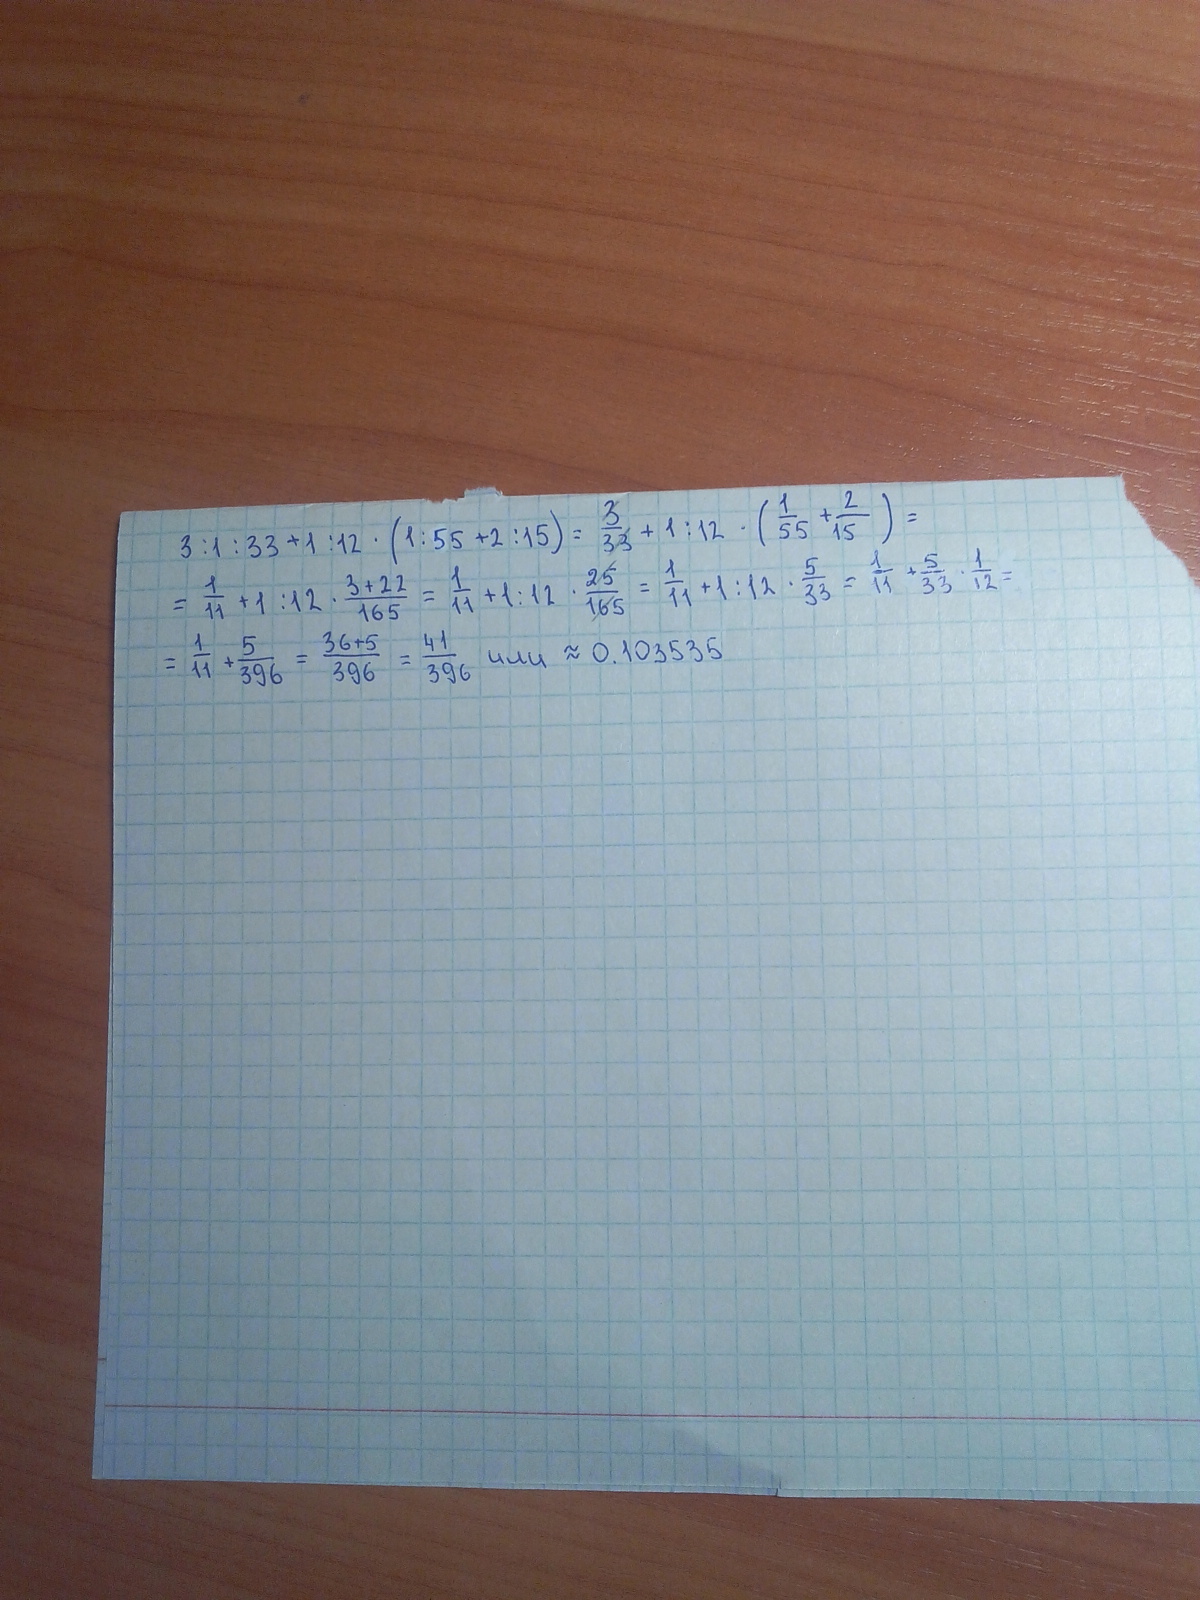 3:1:33+1:12·(1:55+2:15)= 3/33 + 1:12·(1/55+2/15)=
= 1/11 +1:12· (3+22)/165 = 1/11 +1:12· 25/165 = 1/11 +1:12· 5/33 = 1/11 + 5/33 · 1/12 =
= 1/11 + 5/396 = (36+5)/396 = 41/396 или ≈ 0.103535